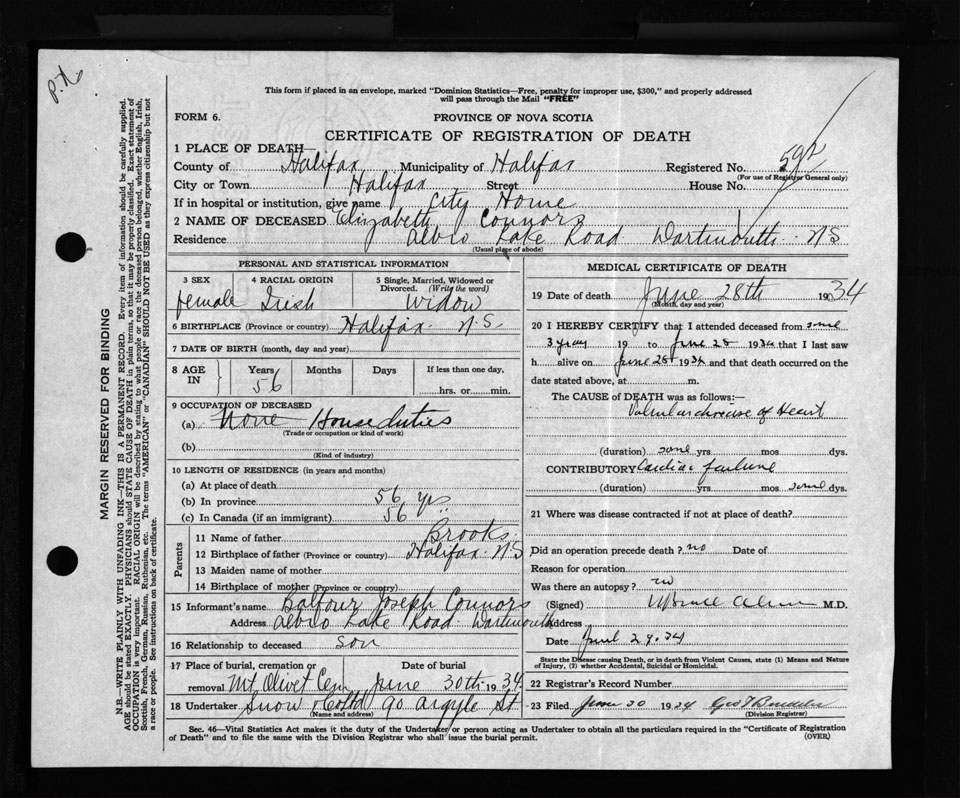 P.N.
This form if placed in an envelope, marked "Dominion Statistics—Free, penalty for improper use, $300," and properly addressed
will pass through the Mail "FREE"
FORM 6.
PROVINCE OF NOVA SCOTIA
CERTIFICATE OF REGISTRATION OF DEATH
1 PLACE OF DEATH—
County of Halifax Municipality of Halifax Registered No. 592
(For use of Registrar General only)
City or Town Halifax Street House No.
If in hospital or institution, give name City Home
2 NAME OF DECEASED Elizabeth Connors
Residence Albro Lake Road Dartmouth N S
(Usual place of abode)
PERSONAL AND STATISTICAL INFORMATION
3 SEX 4 RACIAL ORIGIN 5 Single, Married, Widowed or
Divorced. (Write the word)
female Irish Widow
6 BIRTHPLACE (Province or country) Halifax. N.S.
7 DATE OF BIRTH (month, day and year)
8 AGE IN Years Months Days If less than one day,
56 hrs. or min.
9 OCCUPATION OF DECEASED
(a) None House duties
(Trade or occupation or kind of work)
(b)
(Kind of industry)
10 LENGTH OF RESIDENCE (in years and months)
(a) At place of death
(b) In province 56 yrs
(c) In Canada (if an immigrant) 56
Parents
11 Name of father Brooks
12 Birthplace of father (Province or country) Halifax. N.S
13 Maiden name of mother
14 Birthplace of mother (Province or country)
15 Informant's name Balfour Joseph Connors
Address Albro Lake Road Dartmouth
16 Relationship to deceased son
17 Place of burial, cremation or removal Date of burial
Mt. Olivet Cem June 30th 1934
18 Undertaker Snow & Co Ltd 90 Argyle St
(Name and address)
MEDICAL CERTIFICATE OF DEATH
19 Date of death June 28th 1934
(Month, day and year)
20 I HEREBY CERTIFY that I attended deceased from some
3 years 19 to June 28 1934 that I last saw
h alive on June 28 1934 and that death occurred on the
date stated above, at m.
The CAUSE of DEATH was as follows:—
Valvular disease of Heart
(duration) some yrs. mos. dys.
CONTRIBUTORY Cardiac failure
(duration) yrs mos some dys.
21 Where was disease contracted if not at place of death?
Did an operation precede death? no Date of
Reason for operation
Was there an autopsy? no
(Signed) M.D.
Address
Date June 29. 34
State the Disease causing Death, or in death from Violent Causes, state (1) Means and Nature
of Injury, (2) whether Accidental, Suicidal or Homicidal.
22 Registrar's Record Number
23 Filed June 30 1934
(Division Registrar)
Sec. 46—Vital Statistics Act makes it the duty of the Undertaker or person acting as Undertaker to obtain all the particulars required in the "Certificate of Registration
of Death" and to file the same with the Division Registrar who shall issue the burial permit.
(OVER)
MARGIN RESERVED FOR BINDING
N.B.—WRITE PLAINLY WITH UNFADING INK—THIS IS A PERMANENT RECORD. Every item of information should be carefully supplied.
AGE should be stated EXACTLY. PHYSICIANS should STATE CAUSE OF DEATH in plain terms, so that it may be properly classified. Exact statement of
OCCUPATION is very important. RACIAL ORIGIN will be described by stating to what people or race the deceased person belonged, whether English, Irish,
Scottish, French, German, Russian, Ruthenian, etc. The terms "AMERICAN" or "CANADIAN" SHOULD NOT BE USED as they express citizenship but not
a race or people. See instructions on back of certificate.